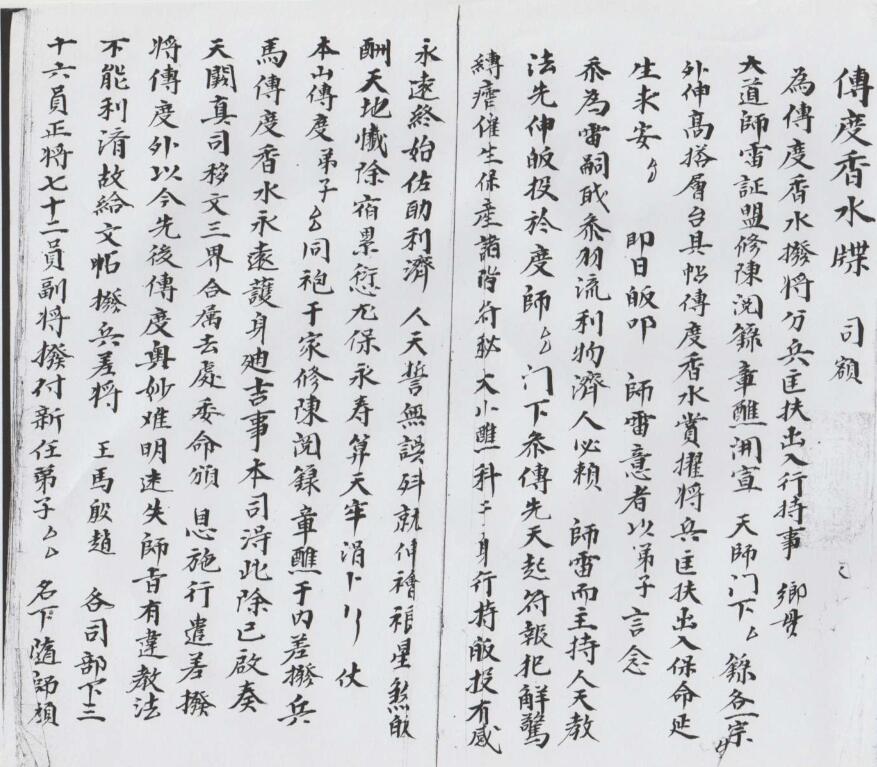 傳度香水牒 司額
為傳度香水撥將分兵匡扶出入行持事 鄉貫
大道師雷証盟修陳閱籙章醮開宣 天師門下厶籙各一宗
外伸高搭層台具帖傳度香水賞擢將兵匡扶出入保命延
生求安厶 即日皈叩 師雷意者以弟子言念
忝為雷嗣戝忝羽流利物濟人必賴 師雷而主持人天教
法先伸皈投於度師厶厶门下忝傳先天起符報犯解驚
縛瘄催生保產諸階符秘大小醮科于身行持皈投有感
永遠終始佐助利濟 人天誓無誤歼就伸禬禳星煞皈
酬天地懺除宿累愆尤保永寿算天牢涓卜 仗
本山傳度弟子厶同袍于家修陳閱籙章醮于內差撥兵
馬傳度香水永遠護身廸吉事本司淂此除已啟奏
天闕真司移文三界合属去處委命頒 恩施行遣差撥
將傳度外以今先後傳度奥妙难明迷失師旨有違教法
不能利濟故給文帖撥兵差將 王馬殷趙 各司部下三
十六員正将七十二員副将撥付新任弟子厶厶 名下随師領